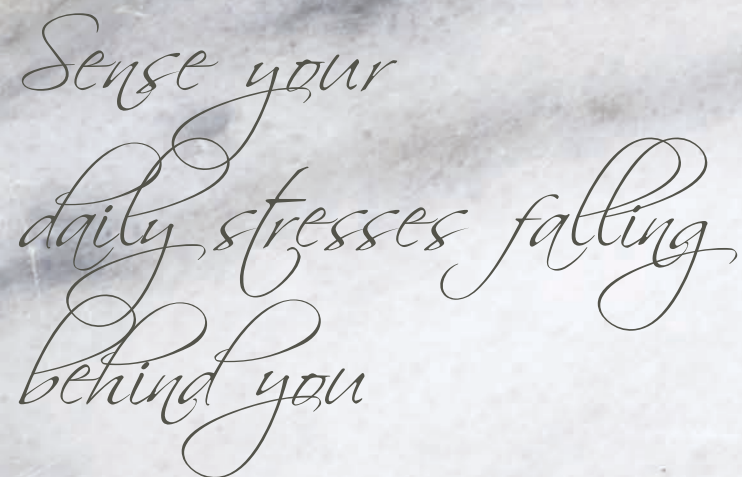 Sense your
daily stresses falling
behind you